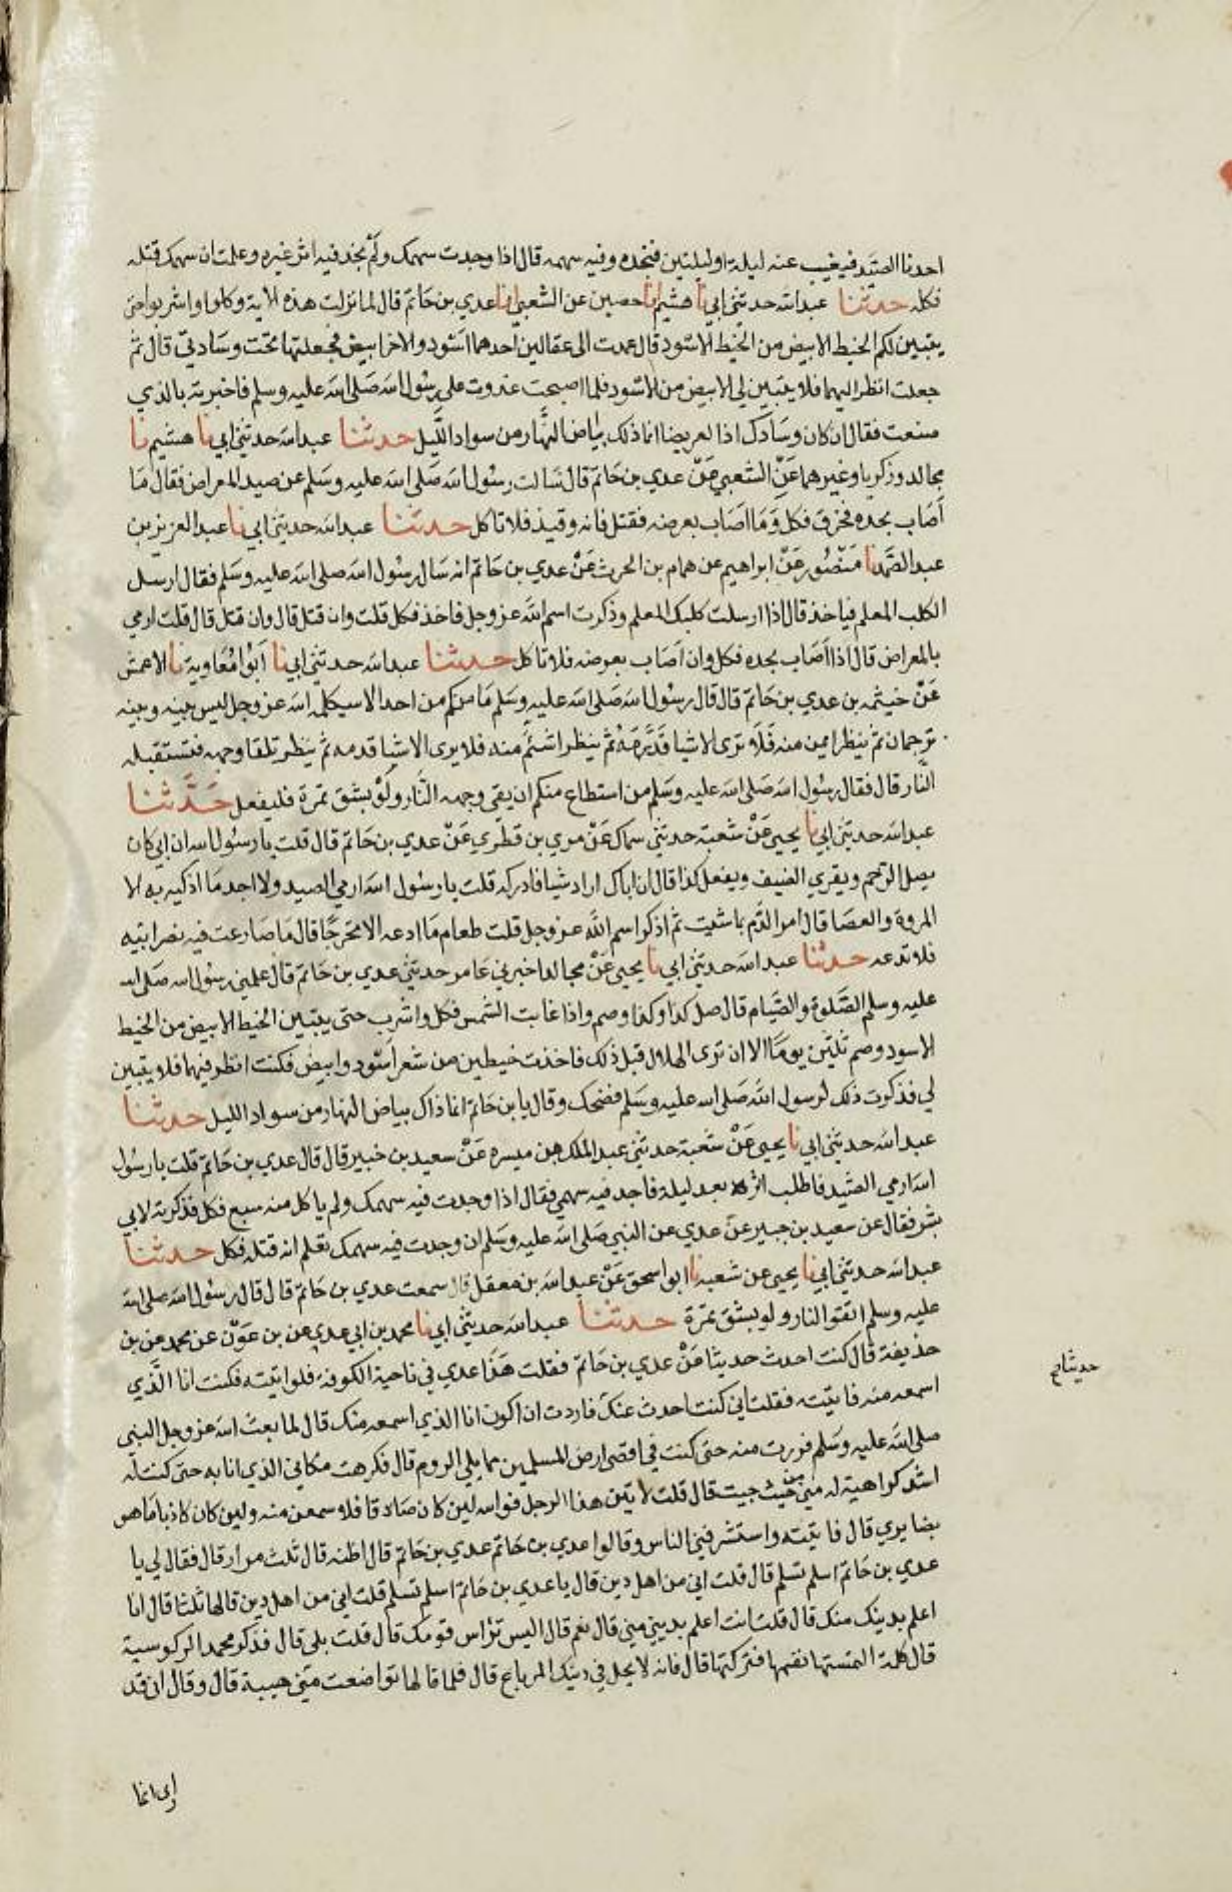 احدنا الصيد فيغيب عنه ليلة او ليلتين فنجده وفيه سهمه قال اذا وجدت سهمك ولم تجد فيه اثر غيره وعلمت ان سهمك قتله
فكله حدثنا عبدالله حدثني ابي نا هشيم انا حصين عن الشعبي انا عدي بن حاتم قال لما نزلت هذه الاية وكلوا واشربوا حتى
يتبين لكم الخيط الابيض من الخيط الاسود قال عمدت الى عقالين احدهما اسود والاخر ابيض فجعلتهما تحت وسادتي قال ثم
جعلت انظر اليهما فلا يتبين لي الابيض من الاسود فلما اصبحت غدوت على رسول الله صلى الله عليه وسلم فاخبرته بالذي
صنعت فقال ان كان وسادك اذا لعريضا انما ذلك بياض النهار من سواد الليل حدثنا عبدالله حدثني ابي نا هشيم نا
مجالد وزكريا وغيرهما عن الشعبي عن عدي بن حاتم قال سالت رسول الله صلى الله عليه وسلم عن صيد المعراض فقال ما
اصاب بحده فخرق فكل وما اصاب بعرضه فقتل فانه وقيذ فلا تاكل حدثنا عبدالله حدثني ابي نا عبد العزيز بن
عبد الصمد نا منصور عن ابراهيم عن همام بن الحرث عن عدي بن حاتم انه سال رسول الله صلى الله عليه وسلم فقال ارسل
الكلب المعلم فياخذ قال اذا ارسلت كلبك المعلم وذكرت اسم الله عز وجل فاخذ فكل قلت وان قتل قال وان قتل قال قلت ارمي
بالمعراض قال اذا اصاب بحده فكل وان اصاب بعرضه فلا تاكل حدثنا عبدالله حدثني ابي نا ابوا معاوية نا الاعمش
عن خيثمه بن عدي بن حاتم قال قال رسول الله صلى الله عليه وسلم ما منكم من احد الا سيكلمه الله عز وجل ليس بينه وبينه
ترجمان ثم ينظر ايمن منه فلا ترى الا شيا قدمه ثم ينظر اشئم منه فلا يرى الا شيا قدمه ثم ينظر تلقا وجهه فتستقبله
النار قال فقال رسول الله صلى الله عليه وسلم من استطاع منكم ان يقي وجهه النار ولو بشق تمرة فليفعل حدثنا
عبدالله حدثني ابي نا يحيى عن شعبة حدثني سماك عن مري بن قطري عن عدي بن حاتم قال قلت يا رسول الله ان ابي كان
يصل الرحم ويقري الضيف ويفعل كذا قال ان اباك اراد شيا فادركه قلت يا رسول الله ارمي الصيد ولا اجد ما اذكيه به الا
المروة والعصا قال امر الدم بما شيت ثم اذكر اسم الله عز وجل قلت طعام ما ادعه الا تحرجا قال ما ضارعت فيه نصرانيه
فلا تدعه حدثنا عبدالله حدثني ابي نا يحيى عن مجالد اخبرني عامر حدثني عدي بن حاتم قال علمني رسول الله صلى الله
عليه وسلم الصلوة والصيام قال صل كذا وكذا وصم واذا غابت الشمس فكل واشرب حتى يتبين الخيط الابيض من الخيط
الاسود وصم ثلثين يوما الا ان ترى الهلال قبل ذلك فاخذت خيطين من شعر اسود وابيض فكنت انظر فيهما فلا يتبين
لي فذكرت ذلك لرسول الله صلى الله عليه وسلم فضحك وقال يا بن حاتم انما ذاك بياض النهار من سواد الليل حدثنا
عبدالله حدثني ابي نا يحيى عن شعبة حدثني عبد الملك بن ميسره عن سعيد بن جبير قال قال عدي بن حاتم قلت يا رسول
الله ارمي الصيد فاطلب اثره بعد ليلة فاجد فيه سهمي فقال اذا وجدت فيه سهمك ولم ياكل منه سبع فكل فذكرته لابي
بشر فقال عن سعيد بن جبير عن عدي عن النبي صلى الله عليه وسلم ان وجدت فيه سهمك تعلم انه قتله فكل حدثنا
عبدالله حدثني ابي نا يحيى عن شعبه نا ابو اسحق عن عبدالله بن معقل قال سمعت عدي بن حاتم قال قال رسول الله صلى الله
عليه وسلم اتقوا النار ولو بشق تمرة حدثنا عبدالله حدثني ابي نا محمد بن ابي عدي عن بن عون عن محمد عن بن
حذيفة قال كنت احدث حديثا عن عدي بن حاتم فقلت هذا عدي في ناحية الكوفة فلو اتيته فكنت انا الذي
حديثا صح
اسمعه منه فاتيته فقلت اني كنت احدث عنك فاردت ان اكون انا الذي اسمعه منك قال لما بعث الله عز وجل النبي
صلى الله عليه وسلم فررت منه حتى كنت في اقصى ارض المسلمين مما يلي الروم قال فكرهت مكاني الذي انا به حتى كنت له
اشد كراهية له مني من حيث جيت قال قلت لاتين هذا الرجل فوالله لين كان صادقا فلاسمعن منه ولين كان كاذبا ما هو
بضايري قال فاتيته واستشرفني الناس وقالوا عدي بن حاتم عدي بن حاتم قال اظنه قال ثلث مرار قال فقال لي يا
عدي بن حاتم اسلم تسلم قال قلت اني من اهل دين قال يا عدي بن حاتم اسلم تسلم قلت اني من اهل دين قالها ثلثا قال انا
اعلم بدينك منك قال قلت انت اعلم بديني مني قال نعم قال اليس تراس قومك قال قلت بلى قال فذكر محمد الركوسية
قال كلمة التمستها نقيمها فتركتها قال فانه لا يحل في دينك المرباع قال فلما قالها تواضعت مني هيبة قال وقال اني قد
ارى انما